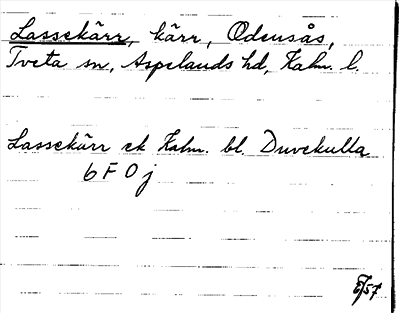 Lassekärr, kärr, Odensås,
Tveta sn, Aspelands hd, Kalm. l.
Lassekärr ek Kalm. bl. Duvekulla
6 F 0 j